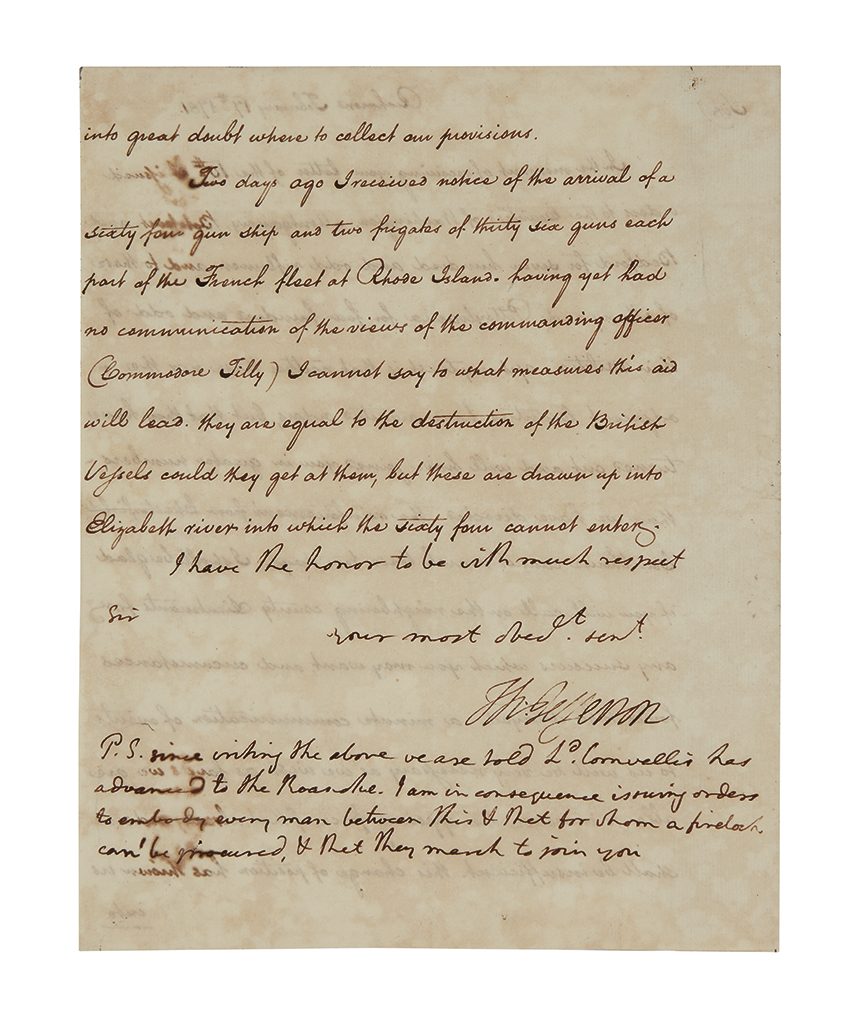 into great doubt where to collect our provisions.
Two days ago I received notice of the arrival of a
sixty four gun ship and two frigates of thirty six guns each
part of the French fleet at Rhode Island. having yet had
no communication of the views of the commanding officer
(Commodore Tilly) I cannot say to what measures this aid
will lead. they are equal to the destruction of the British
Vessels could they get at them, but these are drawn up into
Elizabeth river into which the sixty four cannot enter.
I have the honor to be with much respect
Sir
your most obedt. servt.
Th: Jefferson
P.S. since writing the above we are told Ld. Cornwallis has
advanced to the Roanoke. I am in consequence issuing orders
to embody every man between this & that for whom a firelock
can be procured, & that they march to join you